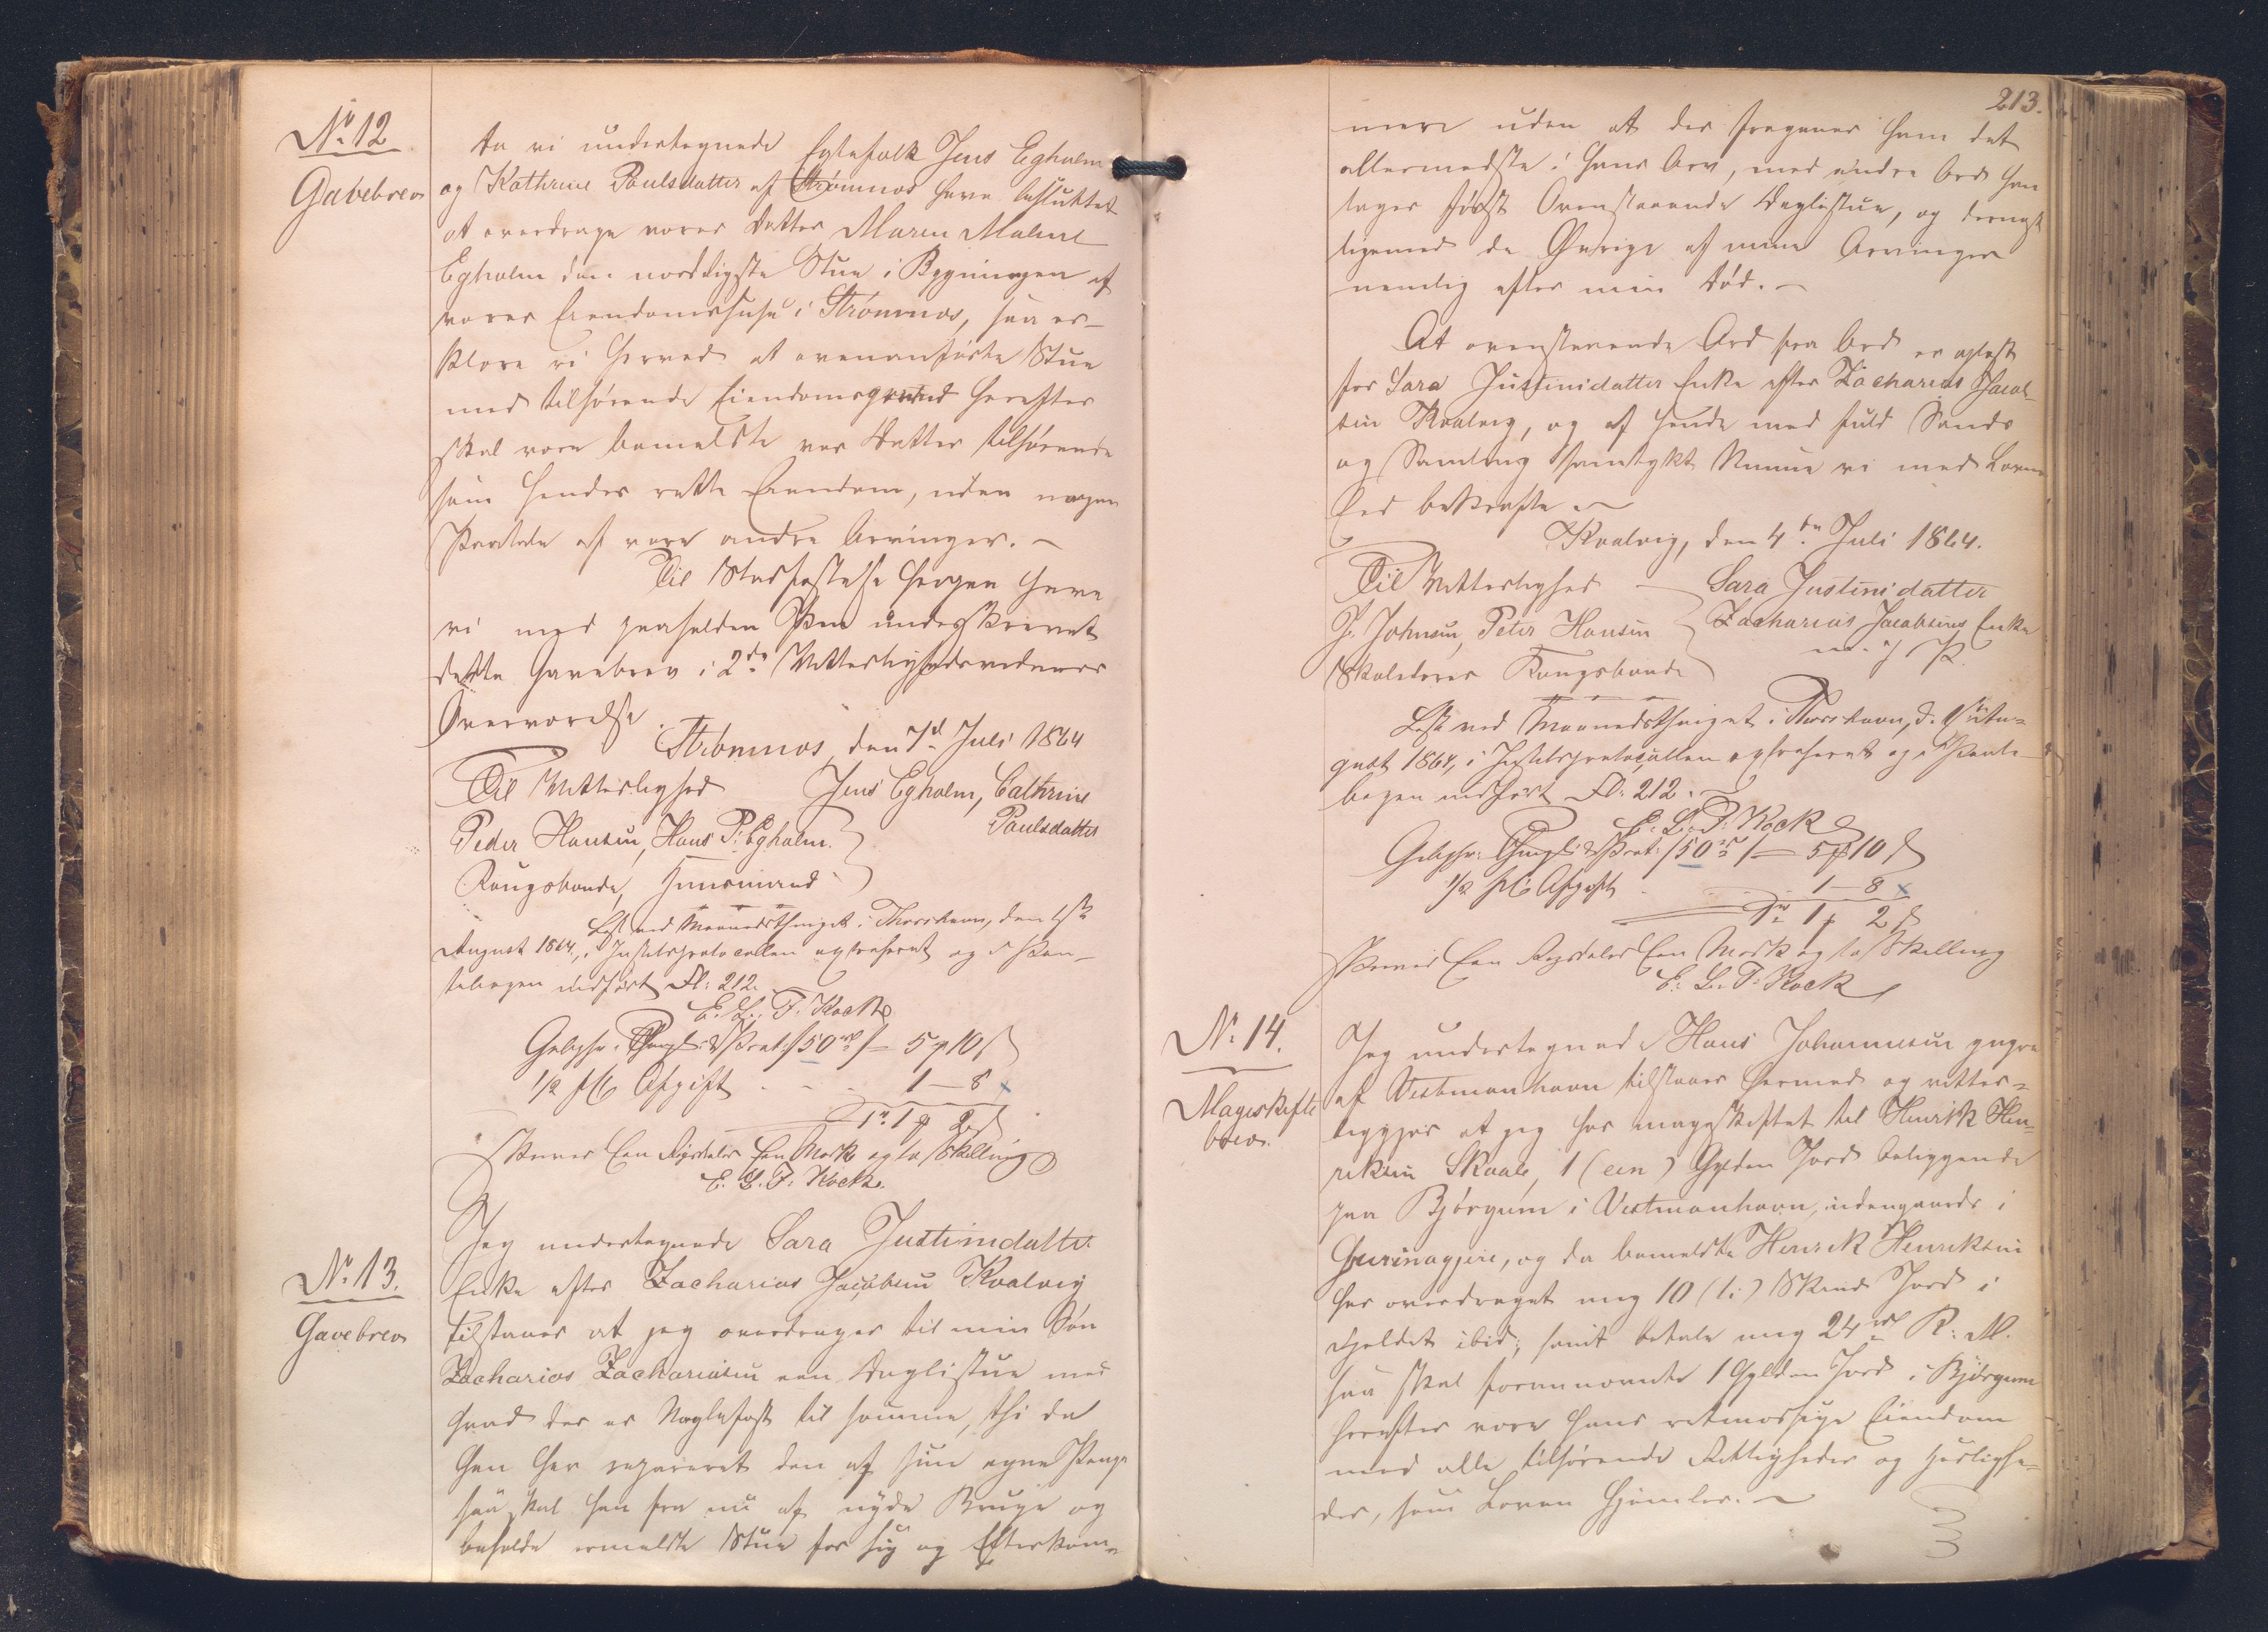 No 12
Gavebrev
Da vi undertegnede Egtefolk Jens Egholm
og Kathrine Poulsdatter af Strömnæs have besluttet
at overdrage vores Datter Maren Malene
Egholm den nordligste Stue i Bygningen af
vores Eiendomshuse i Strömnæs, saa er-
klære vi herved at ovenanførte Stue
med tilhørende Eiendomsgrund herefter
skal være bemeldte vor Datter tilhørende
som hendes rette Eiendom, uden nogen
af vore andre Arvinger. –
Til Stadfæstelse herpaa have
vi med paaholden Pen underskrevet
dette Gavebrev i 2de Vitterlighedsvidners
Overværelse.
Strömnæs, den 7d Juli 1864
Til Vitterlighed Jens Egholm, Cathrine
Poulsdatter
Peder Hansen, Hans P: Egholm.
Kongsbonde, Huusmand
Læst ved Maanedsthinget i Thorshavn, den 1ste
August 1864, i Justitsprotocollen extraheret og i Pan-
tebogen indført Fl: 212.
E. L. F. Kock
Gebyhr: Thingl: & Skrat: /50 rd/ – 5 ʄ 10 ß
1/2 pCt Afgift . . . 1 – 8
1 rd 1 ʄ 2 ß
skriver Een Rigsdaler Een Mark og to Skilling
E. L. F. Kock.
No 13.
Gavebrev
Jeg undertegnede Sara Justinidatter
Enke efter Zacharias Jacobsen Kvalvig
tilstaaer at jeg overdrager til min Søn
Zacharias Zachariasen een Daglistue med
hvad der er Naglefast til samme, thi da
han har repareret den af sine egne Penge
saa skal han fra nu af nyde Bruge og
beholde ermeldte Stue for sig og Efterkom-
213.
mere uden at der fragaaer ham det
allermindste i hans Arv, med andre Ord han
tager først Ovenstaaende Daglistue, og dernæst
ligemed de Øvrige af mine Arvinger
nemlig efter min Død. –
At ovenstaaende Ord fra Ord er oplæst
for Sara Justinidatter Enke efter Zacharias Jacob-
sen Kvalvig, og af hende med fuld Sands
og Samling samtykt kunne vi med Lovens
Eed bekræfte. –
Kvalvig, den 4de Juli 1864.
Til Vitterlighed – Sara Justinidatter
J. Johnsen, Peter Hansen Zacharias Jacobsens Enke
Skolelærer Kongsbonde m. f. P.
Læst ved Maanedsthinget i Thorshavn, d. 1ste Au-
gust 1864, i Justitsprotocollen extraheret og i Pante-
bogen indført Fl: 212. –
E. L. F. Kock
Gebyhr: Thingl: & Skrat: /50 rd/ – 5 ʄ 10 ß
1/2 pCt Afgift . . . 1 – 8
1 rd 1 ʄ 2 ß
skriver Een Rigsdaler Een Mark og to Skilling
E. L. F. Kock
No 14.
Mageskifte
brev.
Jeg undertegnede Hans Johannesen yngre
af Vestmanhavn tilstaaer hermed og vitter-
liggjør at jeg har mageskiftet til Henrik Hen-
riksen Skaale, 1 (een) Gylden Jord beliggende
paa Bjørgum i Vestmanhavn, indengaards i
, og da bemeldte Henrik Henriksen
har overdraget mig 10 (ti) Skind Jord i
ibid; samt betale mig 24 rd R: M.
saa skal forannævnte 1 Gylden Jord i Bjørgum
herefter være hans retmæssige Eiendom
med alle tilhørende Rettigheder og Herlighe-
der, som Loven hjemler. –